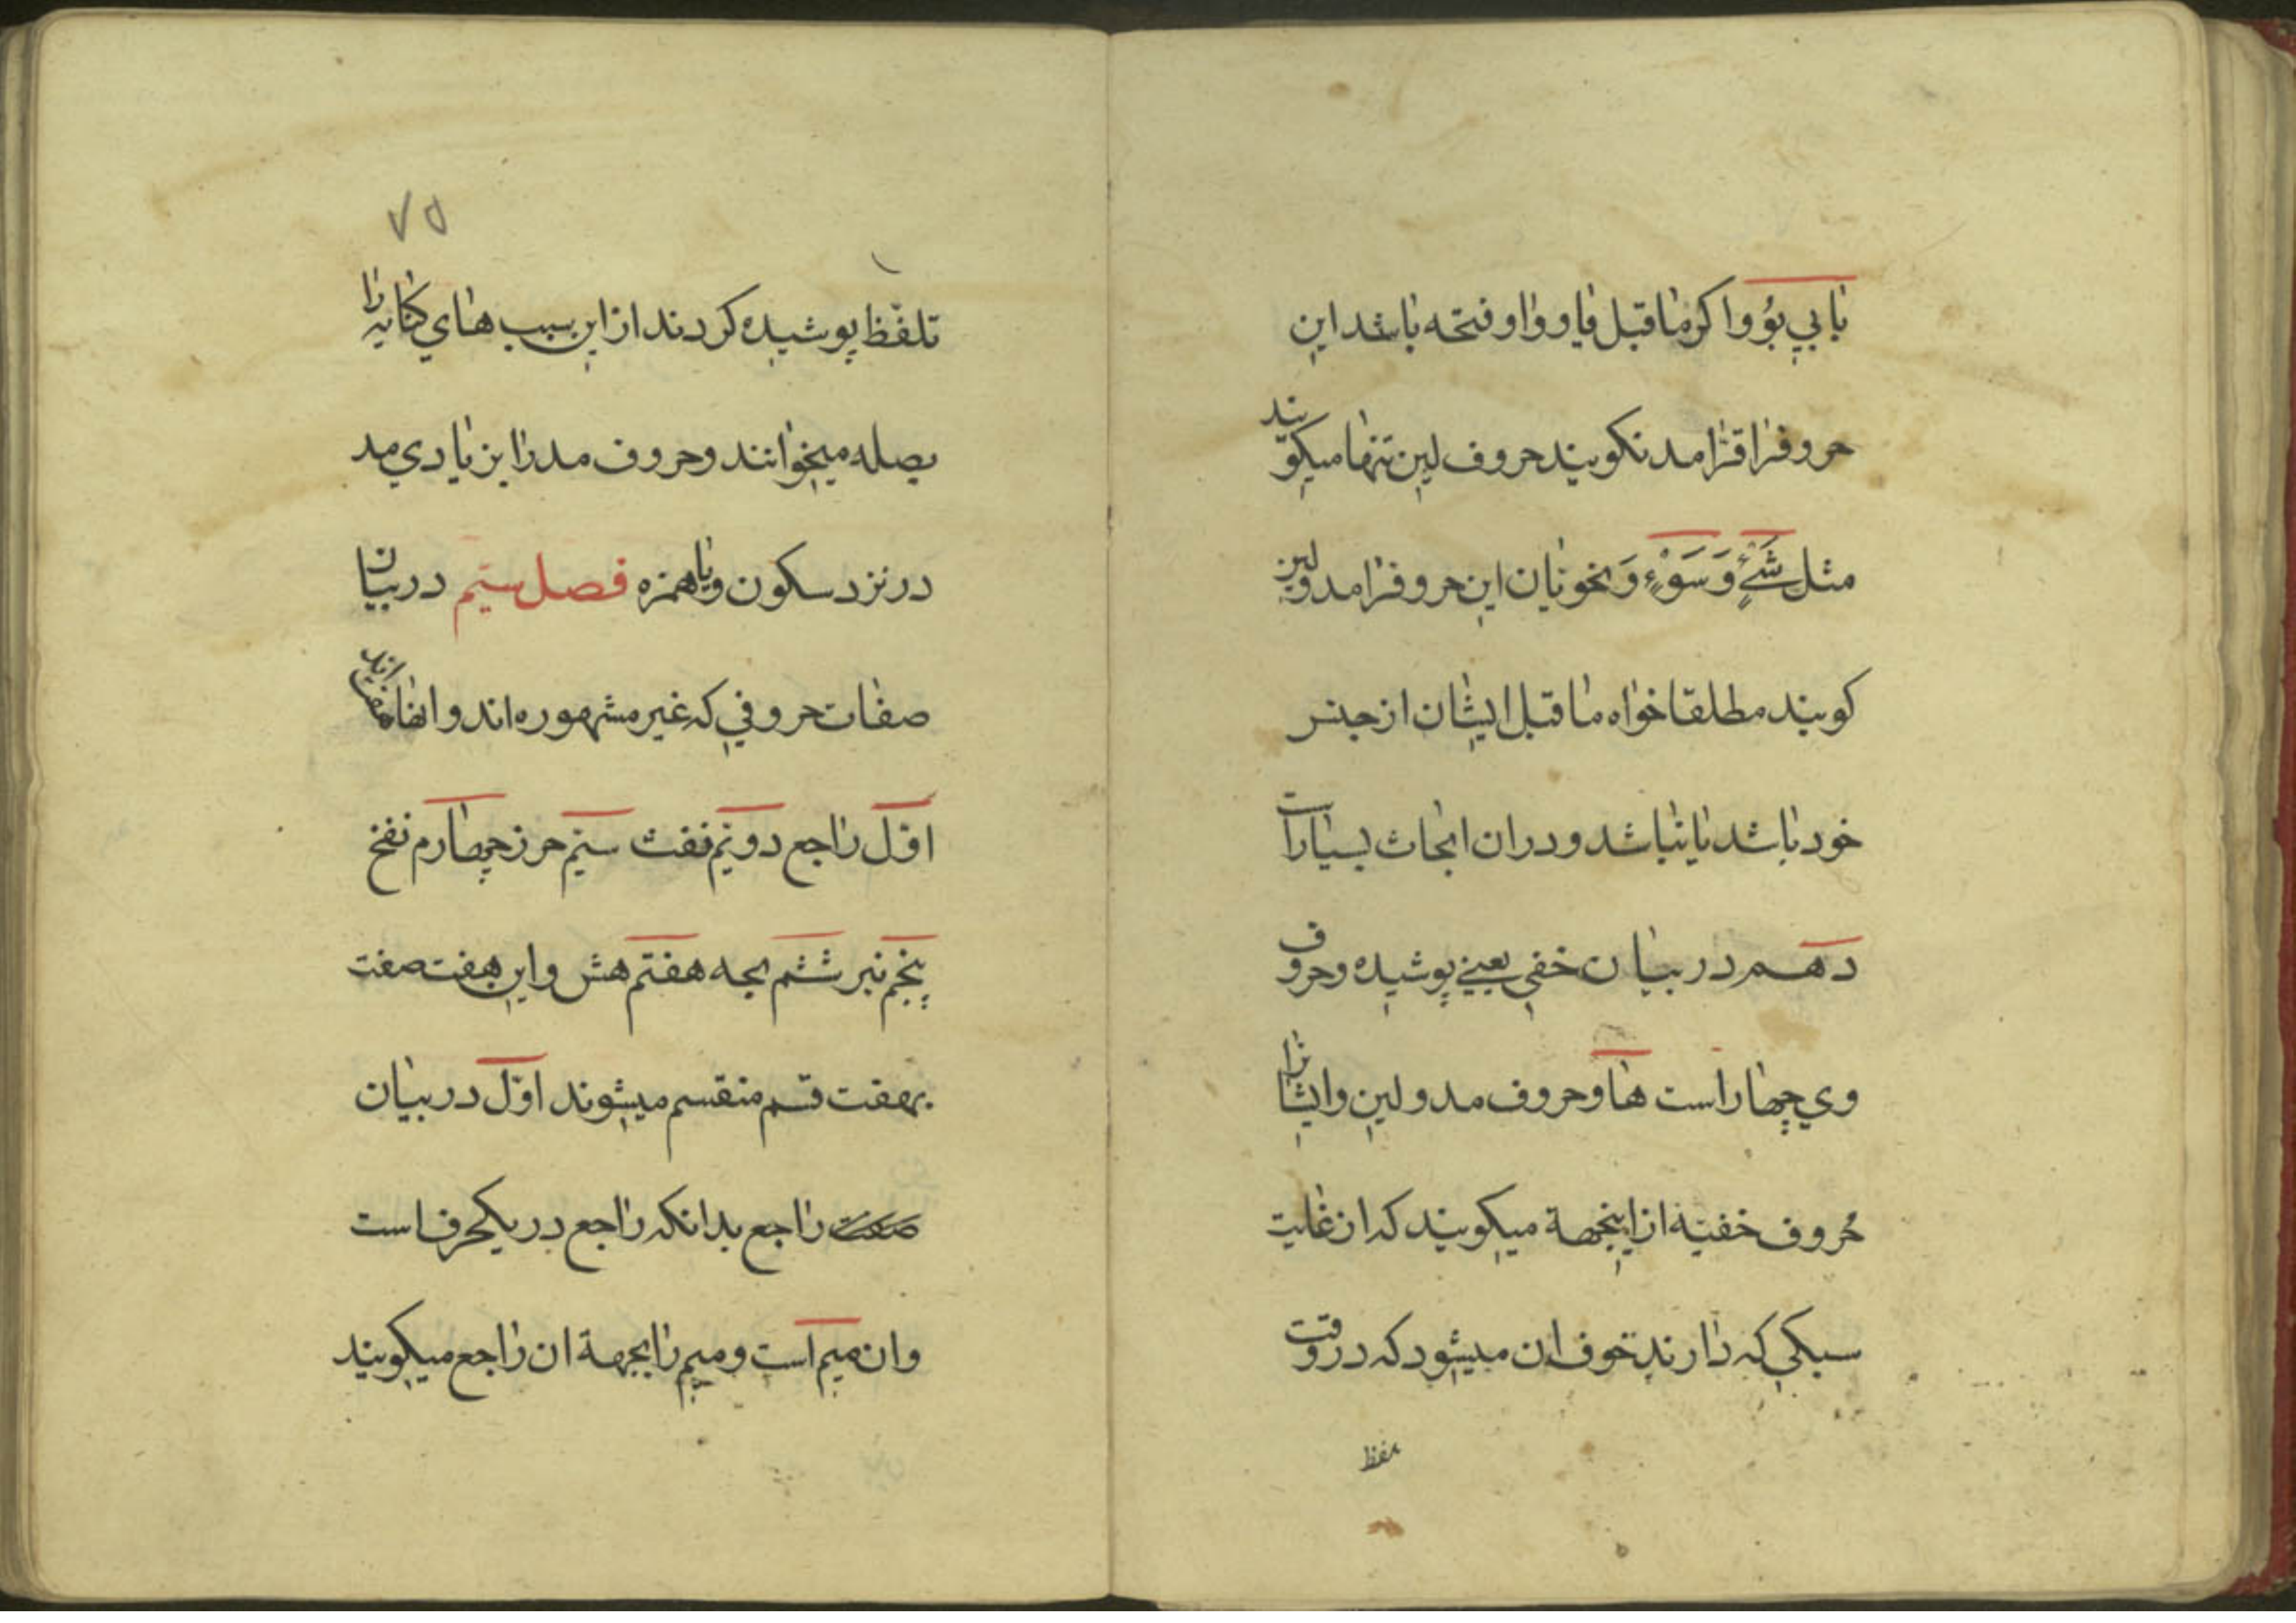 بابي بُوُ واكر ماقبل ياو واو فتحه باشد اين
حروفرا قرا مد نكويند حروف لين تنها ميكويند
مثل شَيْءٍ وَ سَوْءٍ وَ نخو نايان اين حروفرا مد و لين
كويند مطلقا خواه ماقبل ايشان از جنس
خود باشد يا نباشد و دران ابحاث بسيار است
دهم در بيان خفي يعني پوشيده و حروف
وي چهار است ها و حروف مد و لين و ايشانرا
حروف خفيّه از اينجهة ميكويند كه از غايت
سبكي كه دارند خوف ان ميشود كه در وقت
تلفظ
٧٥
تلفّظ پوشيده كردند از اين سبب هاي كنايه را
بصله ميخوانند و حروف مد را بزيادي مد
در نزد سكون و يا همزه فصل سيّم در بيان
صفات حروفي كه غير مشهوره اند و انها هفت اند
اوّل راجع دويّم نفث سيّم حرز چهارم نفخ
پنجم نبر ششم بجه هفتم هش و اين هفت صفت
بهفت قسم منقسم ميشوند اوّل در بيان
صفت راجع بدانكه راجع در يكحرف است
و ان ميم است و ميم را بجهة ان راجع ميكويند